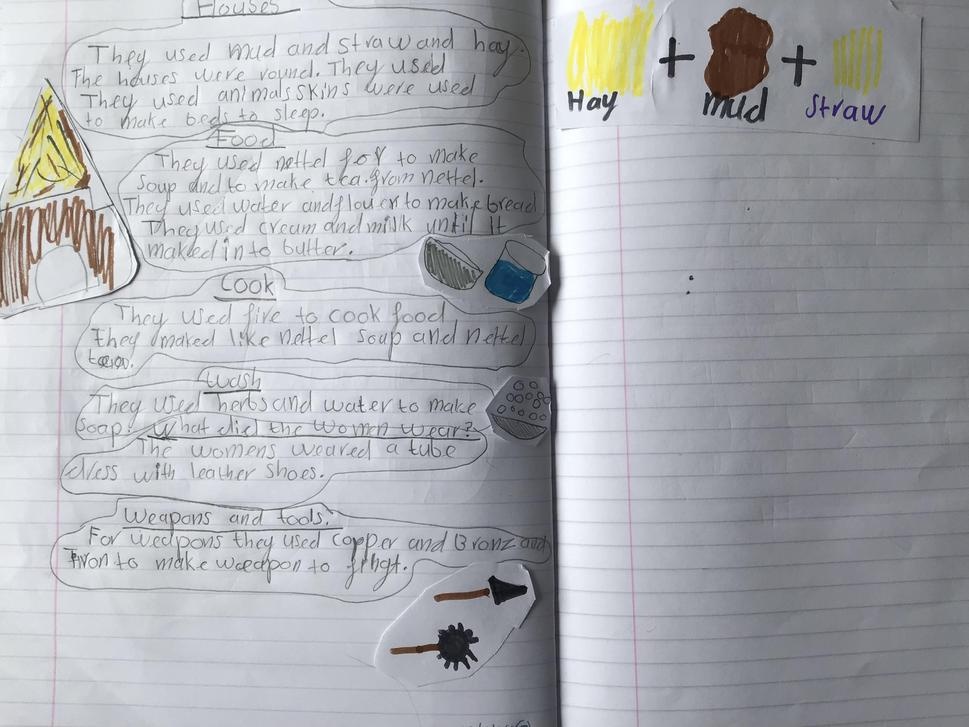 Houses
They used mud and straw and hay.
The houses were round. They used
They used animals skins were used
to make beds to sleep.
Food
They used nettel for to make
soup and to make tea.from nettel.
They used water and flouer to make bread
They used cream and milk until it
maked in to butter.
Cook
They used fire to cook food
They maked like nettel soup and nettel
Wash
They used herbs and water to make
soap. What did the women wear?
The womens weared a tube
dress with leather shoes.
Weapons and tools.
For weapons they used copper and Bronz and
iron to make weapon to
Hay + mud + Straw